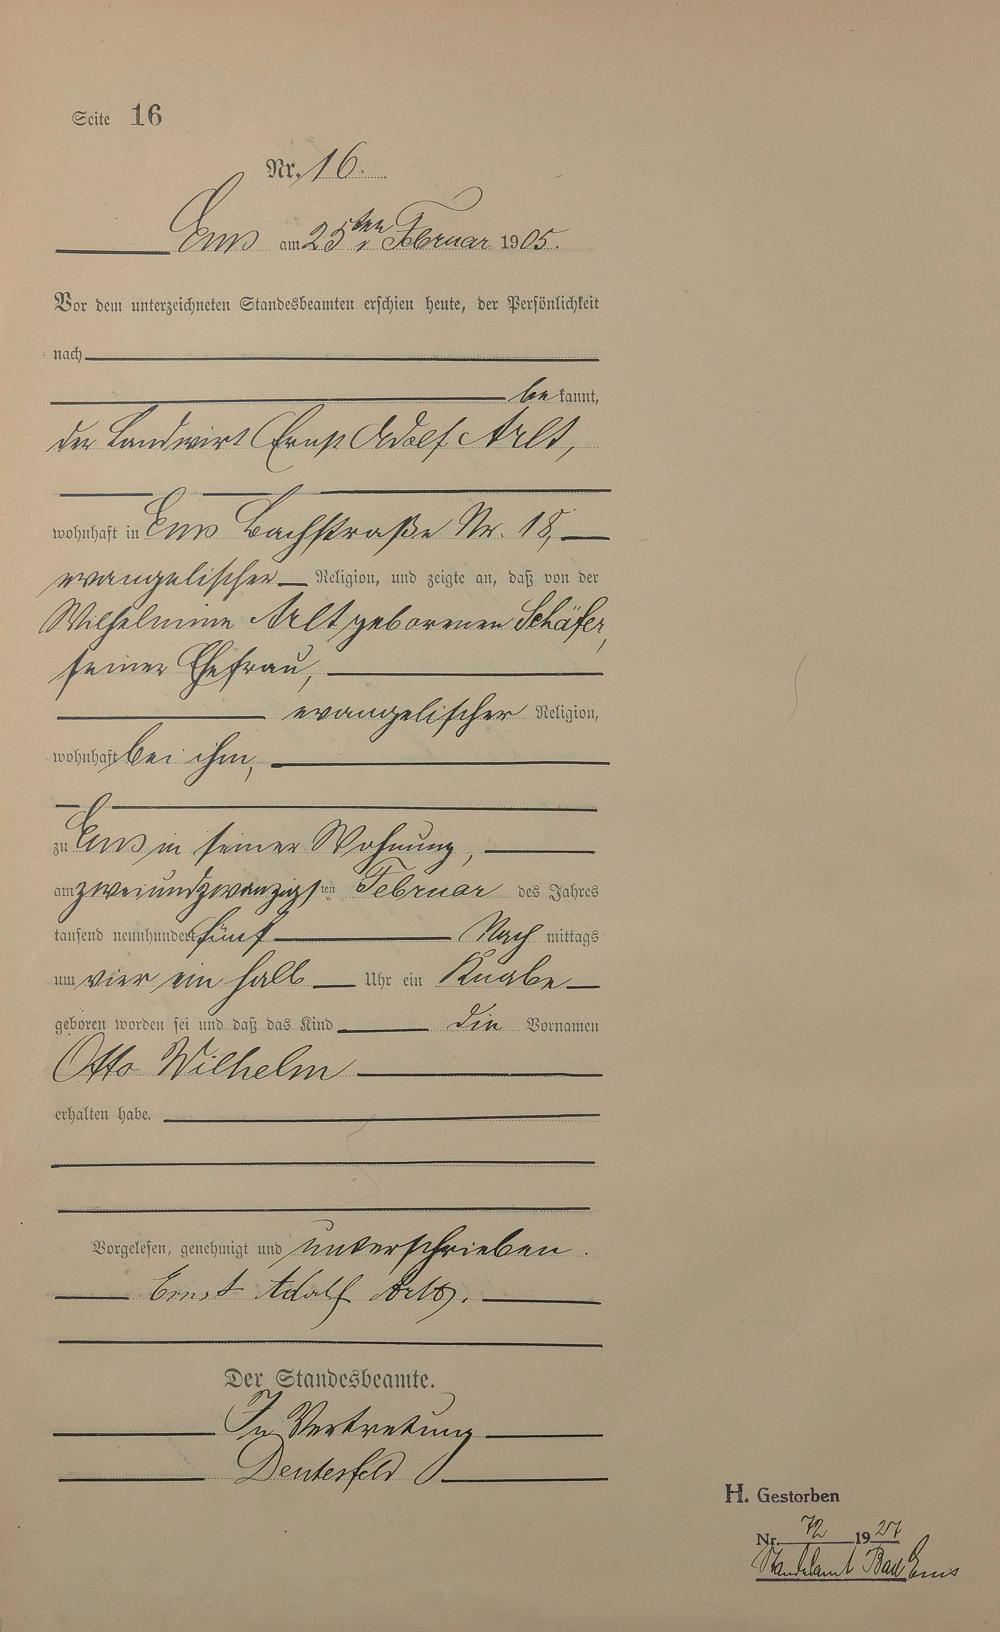 Seite 16
Nr. 16.
Ems am 25ten Februar 1905.
Vor dem unterzeichneten Standesbeamten erschien heute, der Persönlichkeit
nach
be kannt,
der Landwirt Ernst Adolf Arlt,
wohnhaft in Ems Bachstraße Nr. 18,
evangelischer Religion, und zeigte an, daß von der
Wilhelmine Arlt geborenen Schäfer,
seiner Ehefrau,
evangelischer Religion,
wohnhaft bei ihm,
zu Ems in seiner Wohnung,
am zweiundzwanzigsten Februar des Jahres
tausend neunhundert fünf Nach mittags
um vier ein halb Uhr ein Knabe
geboren worden sei und daß das Kind die Vornamen
Otto Wilhelm
erhalten habe.
Vorgelesen, genehmigt und unterschrieben.
Ernst Adolf Arlt.
Der Standesbeamte.
In Vertretung
H. Gestorben
Nr. 72 1927
Standesamt Bad Ems